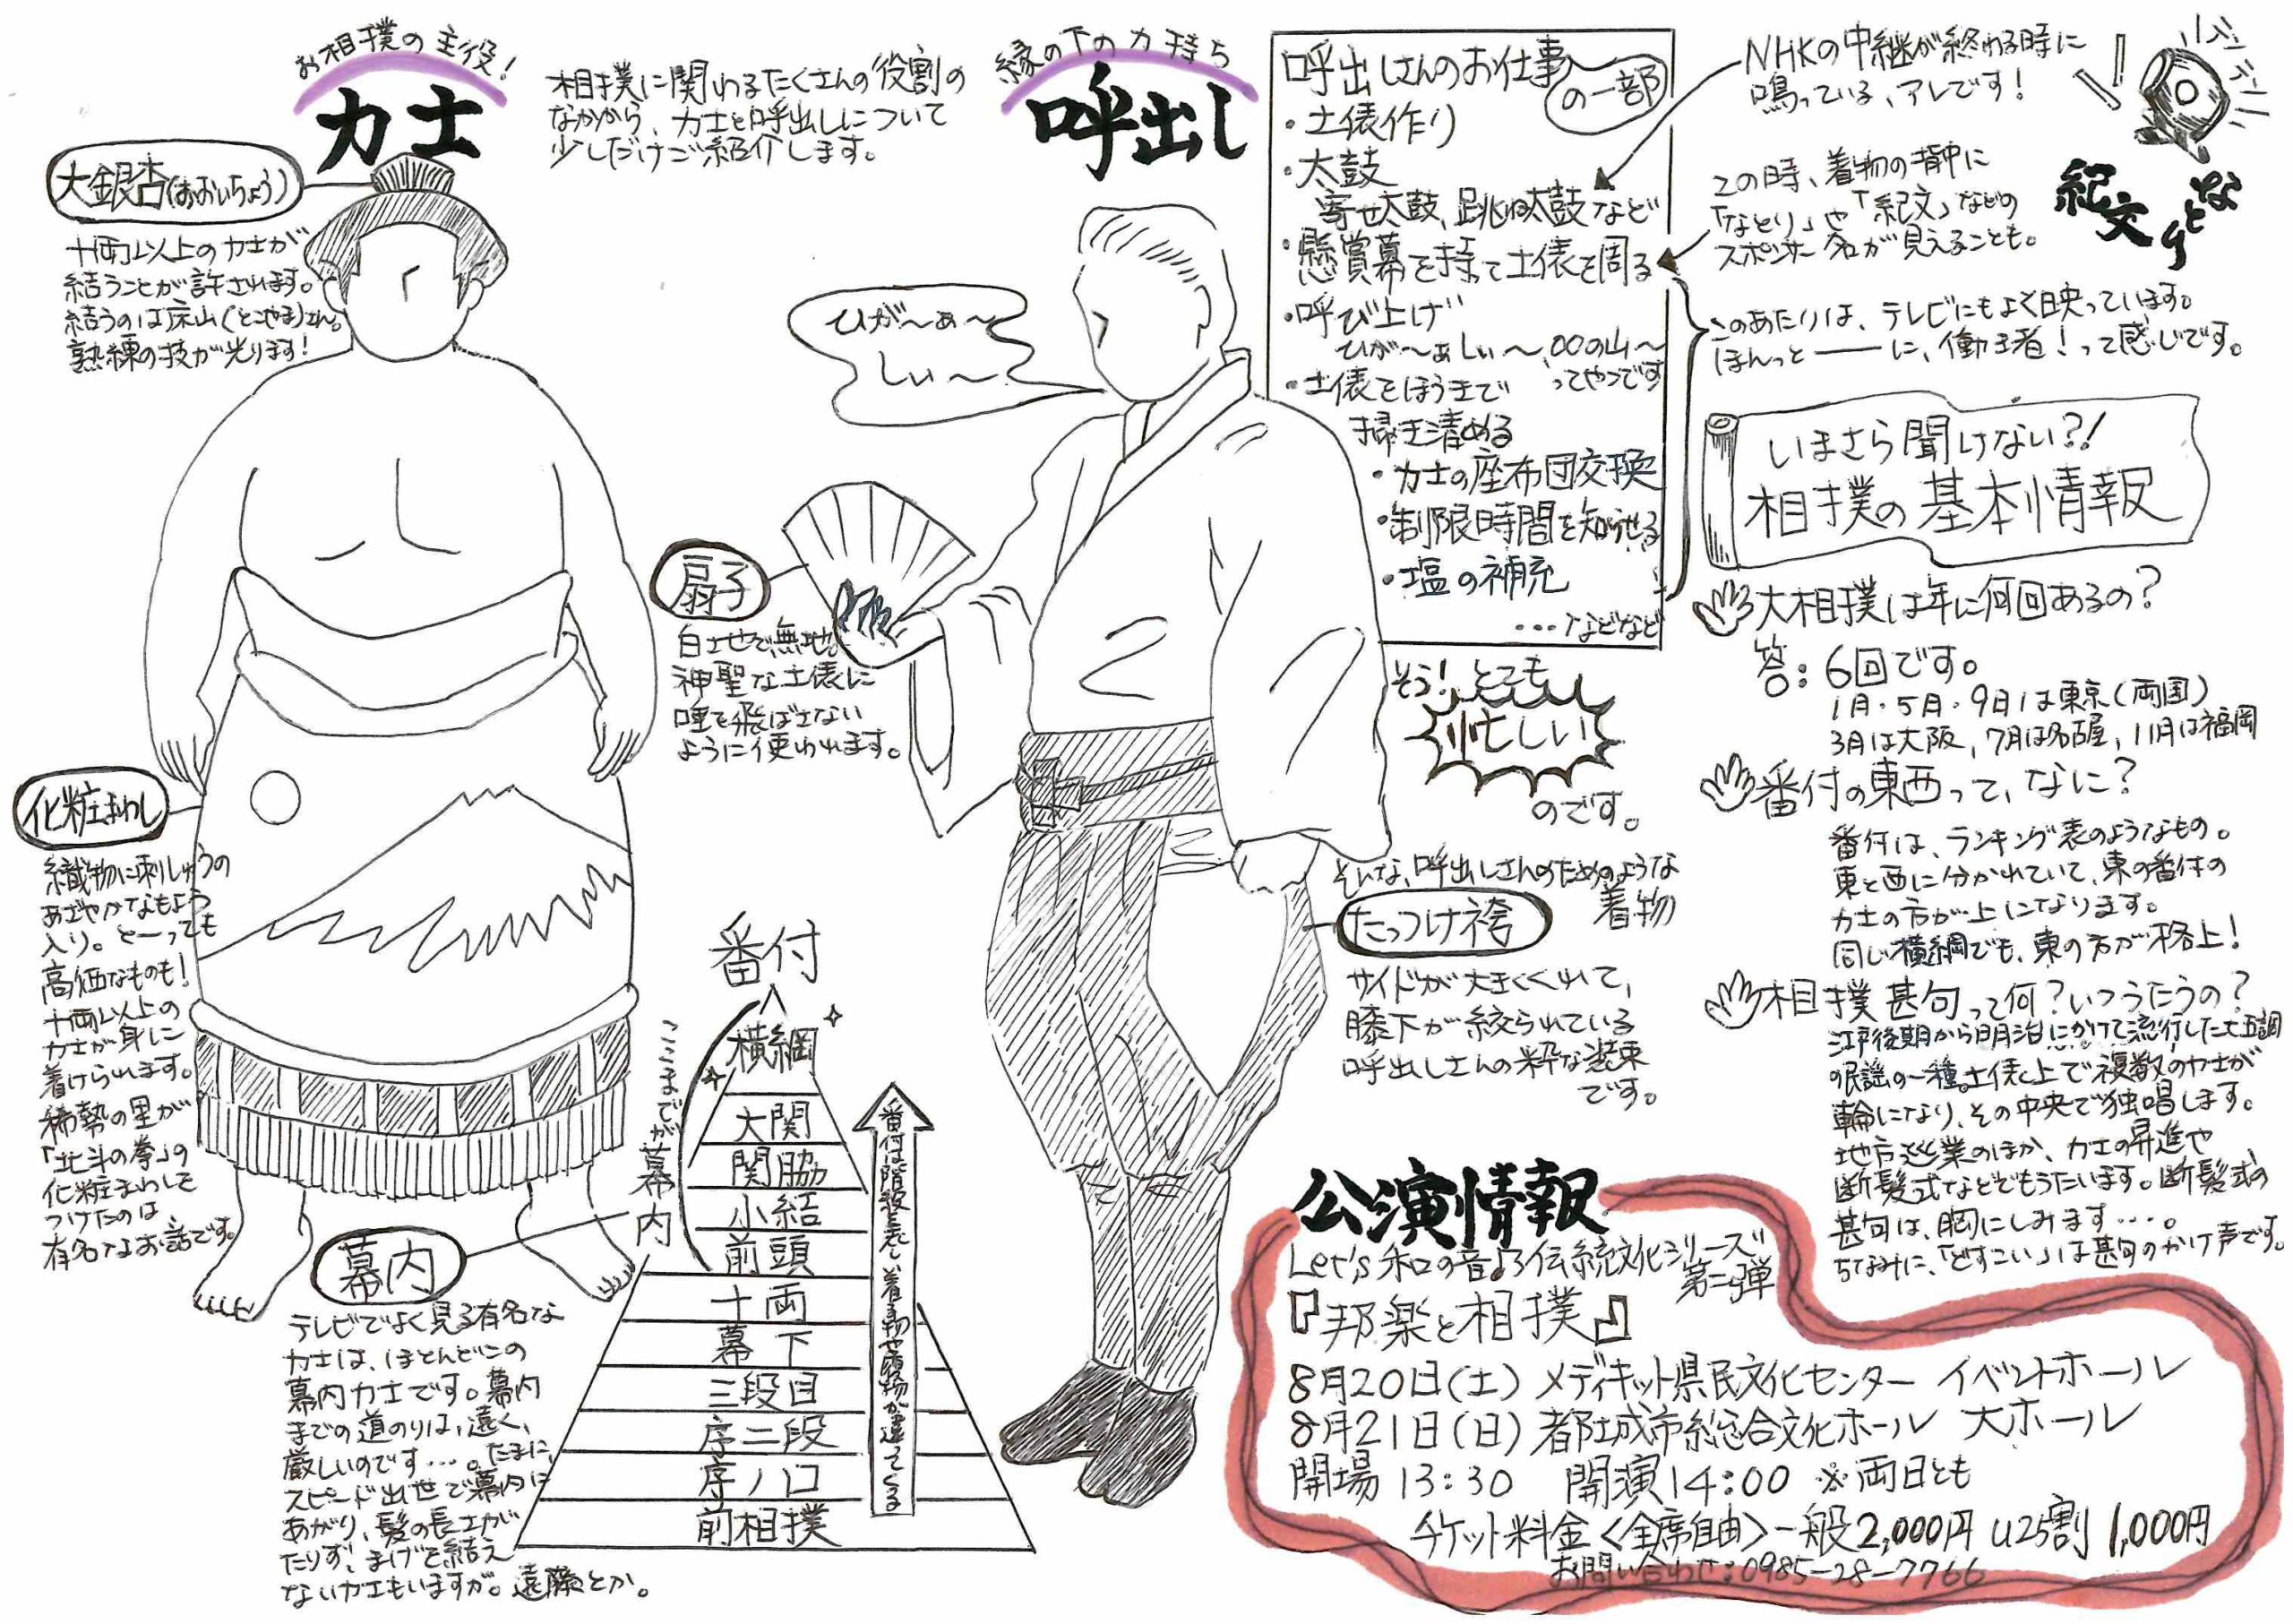 お相撲の主役!
力士
相撲に関わるたくさんの役割の
なかから、力士と呼出しについて
少しだけご紹介します。
大銀杏(おおいちょう)
十両以上の力士が
結うことが許されます。
結うのは床山(とこやま)さん。
熟練の技が光ります!
化粧まわし
織物に刺しゅうの
あざやかなもよう
入り。とーっても
高価なものも!
十両以上の
力士が身に
着けられます。
稀勢の里が
「北斗の拳」の
化粧まわしを
つけたのは
有名なお話です。
幕内
テレビでよく見る有名な
力士は、ほとんどこの
幕内力士です。幕内
までの道のりは、遠く、
厳しいのです…。たまに、
スピード出世で幕内に
あがり、髪の長さが
たりず、まげを結え
ない力士もいますが。遠藤とか。
番付
ここまでが幕内
横綱
大関
関脇
小結
前頭
十両
幕下
三段目
序二段
序ノ口
前相撲
番付は階級を表し、着る物や履物が違ってくる
縁の下の力持ち
呼出し
ひが〜ぁ〜
しぃ〜
扇子
白地で無地。
神聖な土俵に
唾を飛ばさない
ように使われます。
呼出しさんのお仕事
の一部
・土俵作り
・太鼓
寄せ太鼓、跳ね太鼓など
・懸賞幕を持って土俵を周る
・呼び上げ
ひが〜ぁしぃ〜、〇〇の山〜
ってやつです
・土俵をほうきで
掃き清める
・力士の座布団交換
・制限時間を知らせる
・塩の補充
…などなど
そう!とても
忙しい
のです。
そんな、呼出しさんのためのような
着物
たっつけ袴
サイドが大きくくれて、
膝下が絞られている
呼出しさんの粋な装束
です。
NHKの中継が終わる時に
鳴っている、アレです!
デデデン
この時、着物の背中に
「なとり」や「紀文」などの
スポンサー名が見えることも。
紀文
なとり
このあたりは、テレビにもよく映っています。
ほんっと――に、働き者!って感じです。
いまさら聞けない?!
相撲の基本情報
大相撲は年に何回あるの?
答:6回です。
1月・5月・9月は東京(両国)
3月は大阪,7月は名古屋,11月は福岡
番付の東西って、なに?
番付は、ランキング表のようなもの。
東と西に分かれていて、東の番付の
力士の方が上になります。
同じ横綱でも、東の方が格上!
相撲甚句って何?いつうたうの?
江戸後期から明治にかけて流行した七五調
の民謡の一種。土俵上で複数の力士が
輪になり、その中央で独唱します。
地方巡業のほか、力士の昇進や
断髪式などでもうたいます。断髪式の
甚句は、胸にしみます…。
ちなみに、「どすこい」は甚句のかけ声です。
公演情報
Let's 和の音♪伝統文化シリーズ
第二弾
『邦楽と相撲』
8月20日(土) メディキット県民文化センター イベントホール
8月21日(日) 都城市総合文化ホール 大ホール
開場 13:30 開演14:00 ※両日とも
チケット料金<全席自由>一般2,000円 U25割 1,000円
お問い合わせ:0985-28-7766